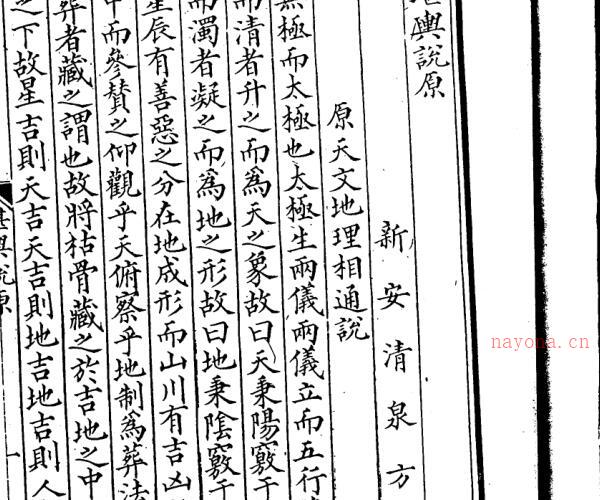 輿說原
新安清泉方
原天文地理相通說
無極而太極也太極生兩儀兩儀立而五行
而清者升之而爲天之象故曰天秉陽竅于
而濁者凝之而爲地之形故曰地秉陰竅于
星辰有善惡之分在地成形而山川有吉凶
中而參贊之仰觀乎天俯察乎地制爲葬法
葬者藏之謂也故將枯骨藏之於吉地之中
之下故星吉則天吉天吉則地吉地吉則人
堪輿說原
一
nayona.cn